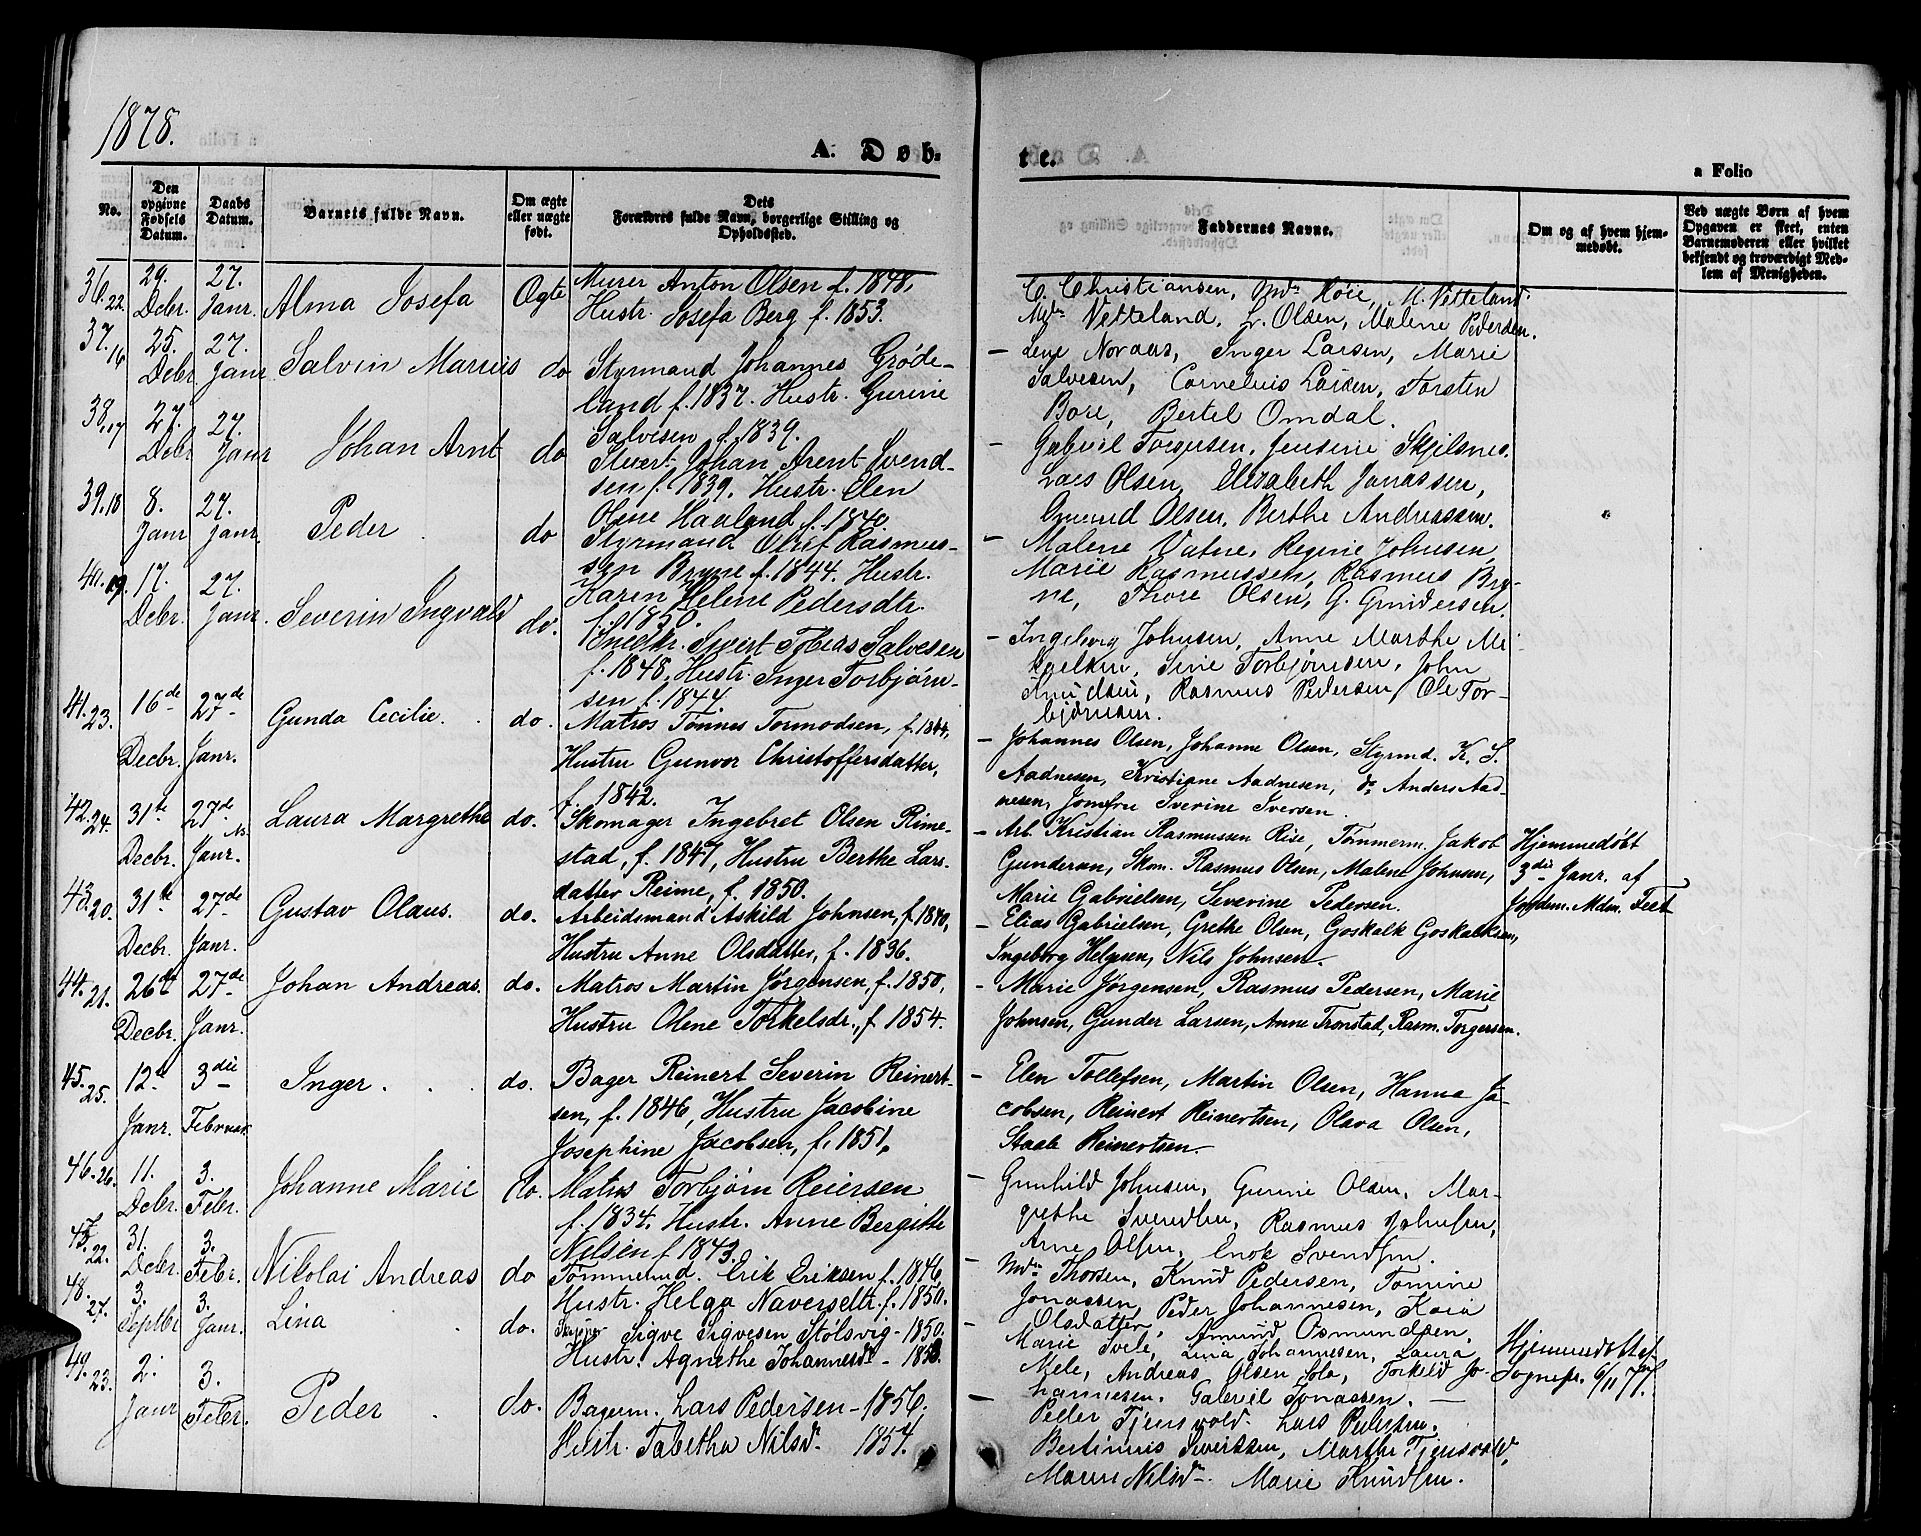 1878.
A. Døb-
te.
a Folio
No.
Den opgivne Fødsels Datum.
Daabs Datum.
Barnets fulde Navn.
Om ægte eller uægte født.
Dets Forældres fulde Navn, borgerlige Stilling og Opholdssted.
Faddernes Navne.
Om og af hvem hjemmedøbt.
Ved uægte Børn af hvem Opgaven er skeet, enten Barnemoderen eller hvilket bekjendt og troværdigt Medlem af Menigheden.
36. 22. 29. Debr. 27. Janr. Alma Josefa Ægte
Murer Anton Olsen f. 1848,
Hustr. Josefa Berg f. 1853.
C. Christiansen, Md. Høie, M. Vetteland
Md. Vetteland, L. Olsen, Malene Pedersen.
37. 16 25. Debr 27. Janr Salvin Marius do
Styrmand Johannes Grøde-
land f. 1837. Hustr. Gurine
Salvesen f. 1839.
– Lene Noraas, Inger Larsen, Marie
Salvesen, Cornelius Larsen, Torsten
Bore, Bertel Omdal.
38. 17 27. Debr 27. Janr Johan Arnt do
Stuert Johan Arent Svend-
sen f. 1839. Hustr. Elen
Oline Haaland f. 1840.
– Gabriel Torgersen, Jensine Skjilsnes.
Lars Olsen, Elizabeth Jonassen,
Omund Olsen, Berthe Andreassen.
39. 18 8. Janr 27. Janr. Peder do
Styrmand Oluf Rasmus-
sen Bryne f. 1844. Hustr.
Karen Helene Pedersdtr.
f. 1850.
– Malene Vatne, Regine Johnsen,
Marie Rasmussen, Rasmus Bry-
ne, Thore Olsen, G. Gundersen.
40. 19. 17. Debr. 27. Janr. Severin Ingvald do.
Snedkr. Sivert Tobias Salvesen
f. 1848, Hustr. Inger Torbjørn-
sen f. 1844.
– Ingeborg Johnsen, Anne Marthe Mi-
kaelsen, Sine Torbjørnsen, John
Knudsen, Rasmus Pedersen, Ole Tor-
bjørnsen.
41. 23. 16de Decbr. 27de Janr. Gunda Cecilie. do.
Matros Tønnes Tormodsen, f. 1844,
Hustru Gunvor Christoffersdatter,
f. 1842.
– Johannes Olsen, Johanne Olsen, Styrmd. K. S.
Aadnesen, Kristiane Aadnesen, do. Anders Aad-
nesen, Jomfru Sverine Iversen.
42. 24. 31te Decbr. 27de Janr. Laura Margrethe do.
Skomager Ingebret Olsen Rime-
stad, f. 1847, Hustru Berthe Lars-
datter Reime, f. 1850.
– Arb. Kristian Rasmussen Rise, Tømmerm. Jakob
Gunderson, Skom. Rasmus Olsen, Malene Johnsen,
Marie Gabrielsen, Severine Pedersen.
Hjemmedøbt
3die Janr. af
Jordem. Mdm. Feet
43. 20. 31te Decbr. 27de Janr. Gustav Olaus. do.
Arbeidsmand Askild Johnsen, f. 1840,
Hustru Anne Olsdatter, f. 1836.
– Elias Gabrielsen, Grethe Olsen, Goskalk Goskalksen,
Ingeborg Helgesen, Nils Johnsen.
44. 21. 26de Decbr. 27de Janr. Johan Andreas. do.
Matros Martin Jørgensen, f. 1850,
Hustru Olene Torkelsdr., f. 1854.
– Marie Jørgensen, Rasmus Pedersen, Marie
Johnsen, Gunder Larsen, Anne Tronstad, Rasm. Torgersen.
45. 25. 12te Janr. 3die Februar. Inger. do.
Bager Reinert Severin Reinert-
sen, f. 1846, Hustru Jacobine
Josephine Jacobsen, f. 1851,
– Elen Tollefsen, Martin Olsen, Hanna Ja-
cobsen, Reinert Reinertsen, Olava Olsen,
Staale Reinertsen.
46. 26. 11. Debr. 3. Febr. Johanne Marie do.
Matros Torbjørn Reiersen
f. 1834. Hustr. Anne Bergitte
Nilsen f. 1843.
– Gunhild Johnsen, Gurine Olsen, Mar-
grethe Svendsen, Rasmus Johnsen,
Arne Olsen, Enok Svendsen.
47. 22. 31. Debr. 3. Febr. Nikolai Andreas do
Tømmermd. Erik Eriksen f. 1846,
Hustr. Helga Naversdtr. f. 1850.
Md. Thorsen, Knud Pedersen, Tomine
Jonassen, Peder Johannesen, Kaia
Olsdatter, Amund Osmundsen.
48. 27. 3. Septbr 3. Janr. Lina do.
Skipper Sigve Sigvesen Stølsvig - 1850.
Hustr. Agnethe Johannesdr - 1853.
– Marie Svele, Lina Johannesen, Laura
Mele, Andreas Olsen Sola, Torkild Jo-
hannesen, Gabriel Jonassen. –
Hjemmedøbt af
Sognepr. 6/11 77.
49. 23. 2. Janr 3. Febr. Peder do.
Bagerm. Lars Pedersen - 1856.
Hustr. Tabitha Nilsdr. 1857.
– Peder Tjensvold. Lars Pedersen.
Bertinius Sivertsen, Marthe Tjensvold,
Maren Nilsdr. Marie Knudsen.